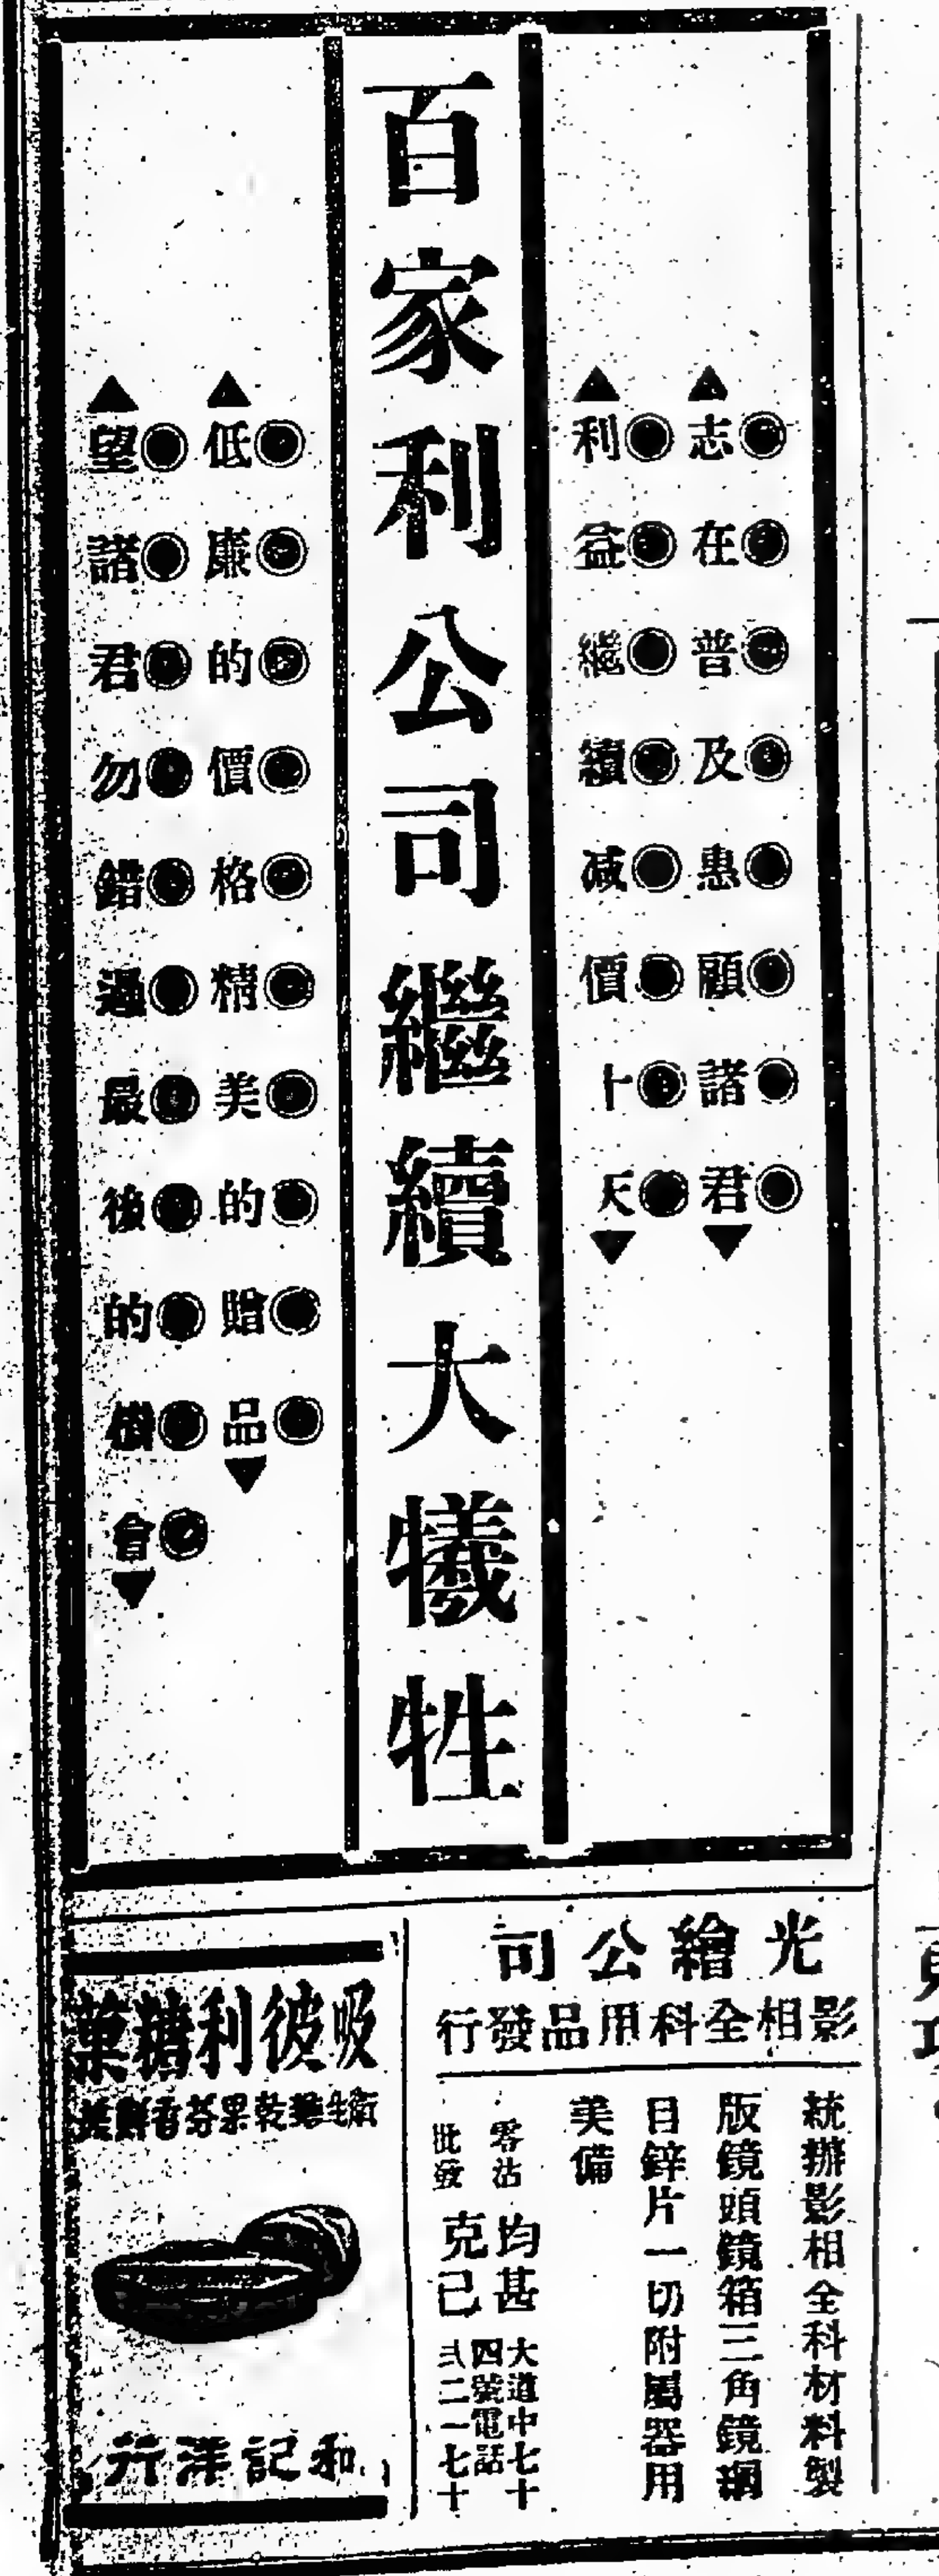 志在普及惠顧諸君
利益繼續减價十天
百家利公司繼續大犧牲
低廉的價格精美的贈品
望諸君勿錯過最後的機會
光繪公司
影相全科用品發行
統辦影相全科材料製
版鏡頭鏡箱三角鏡網
目鋅片一切附屬器用
美備
零沽
批發
均甚
克己
大道中七十
四號電話
弍二一七十
吸彼利糖菓
衛生麵乾果芬香鮮美
和記洋行